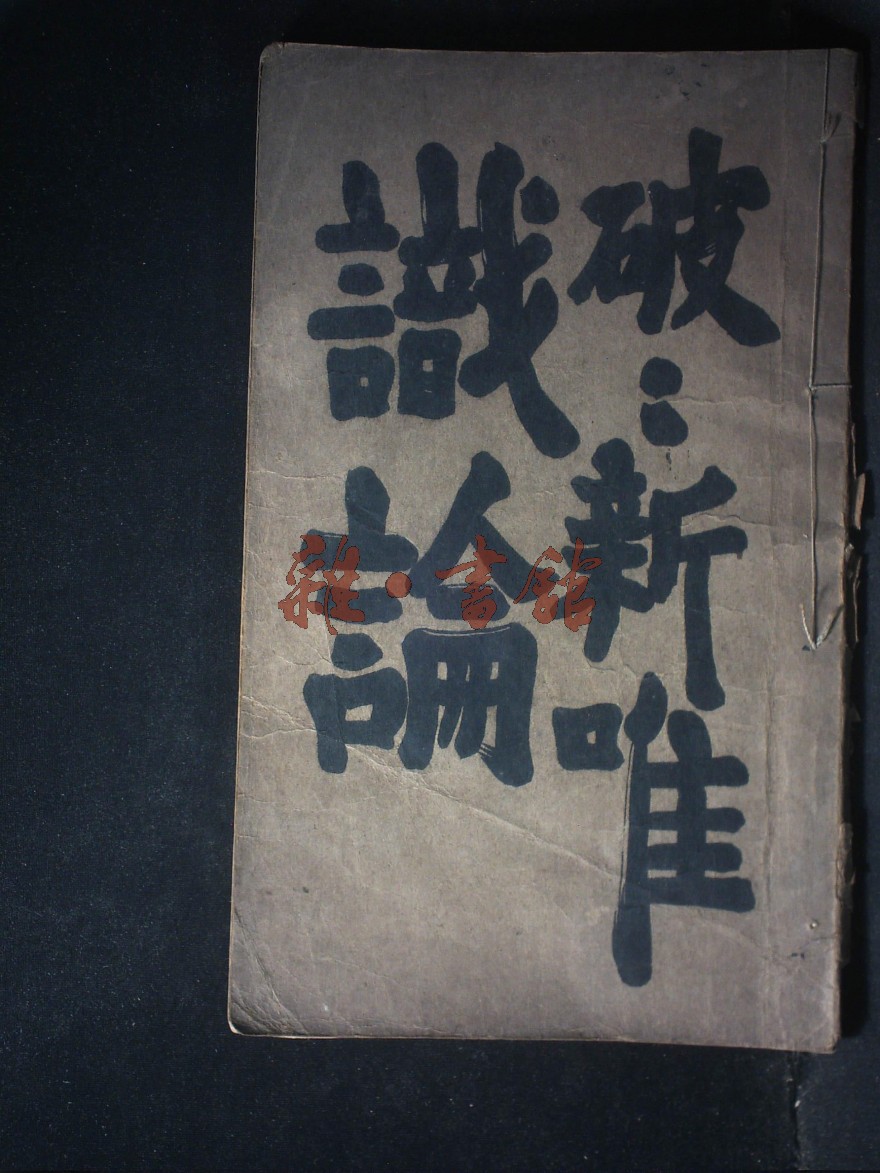 破〻新唯
識論
雜·書館